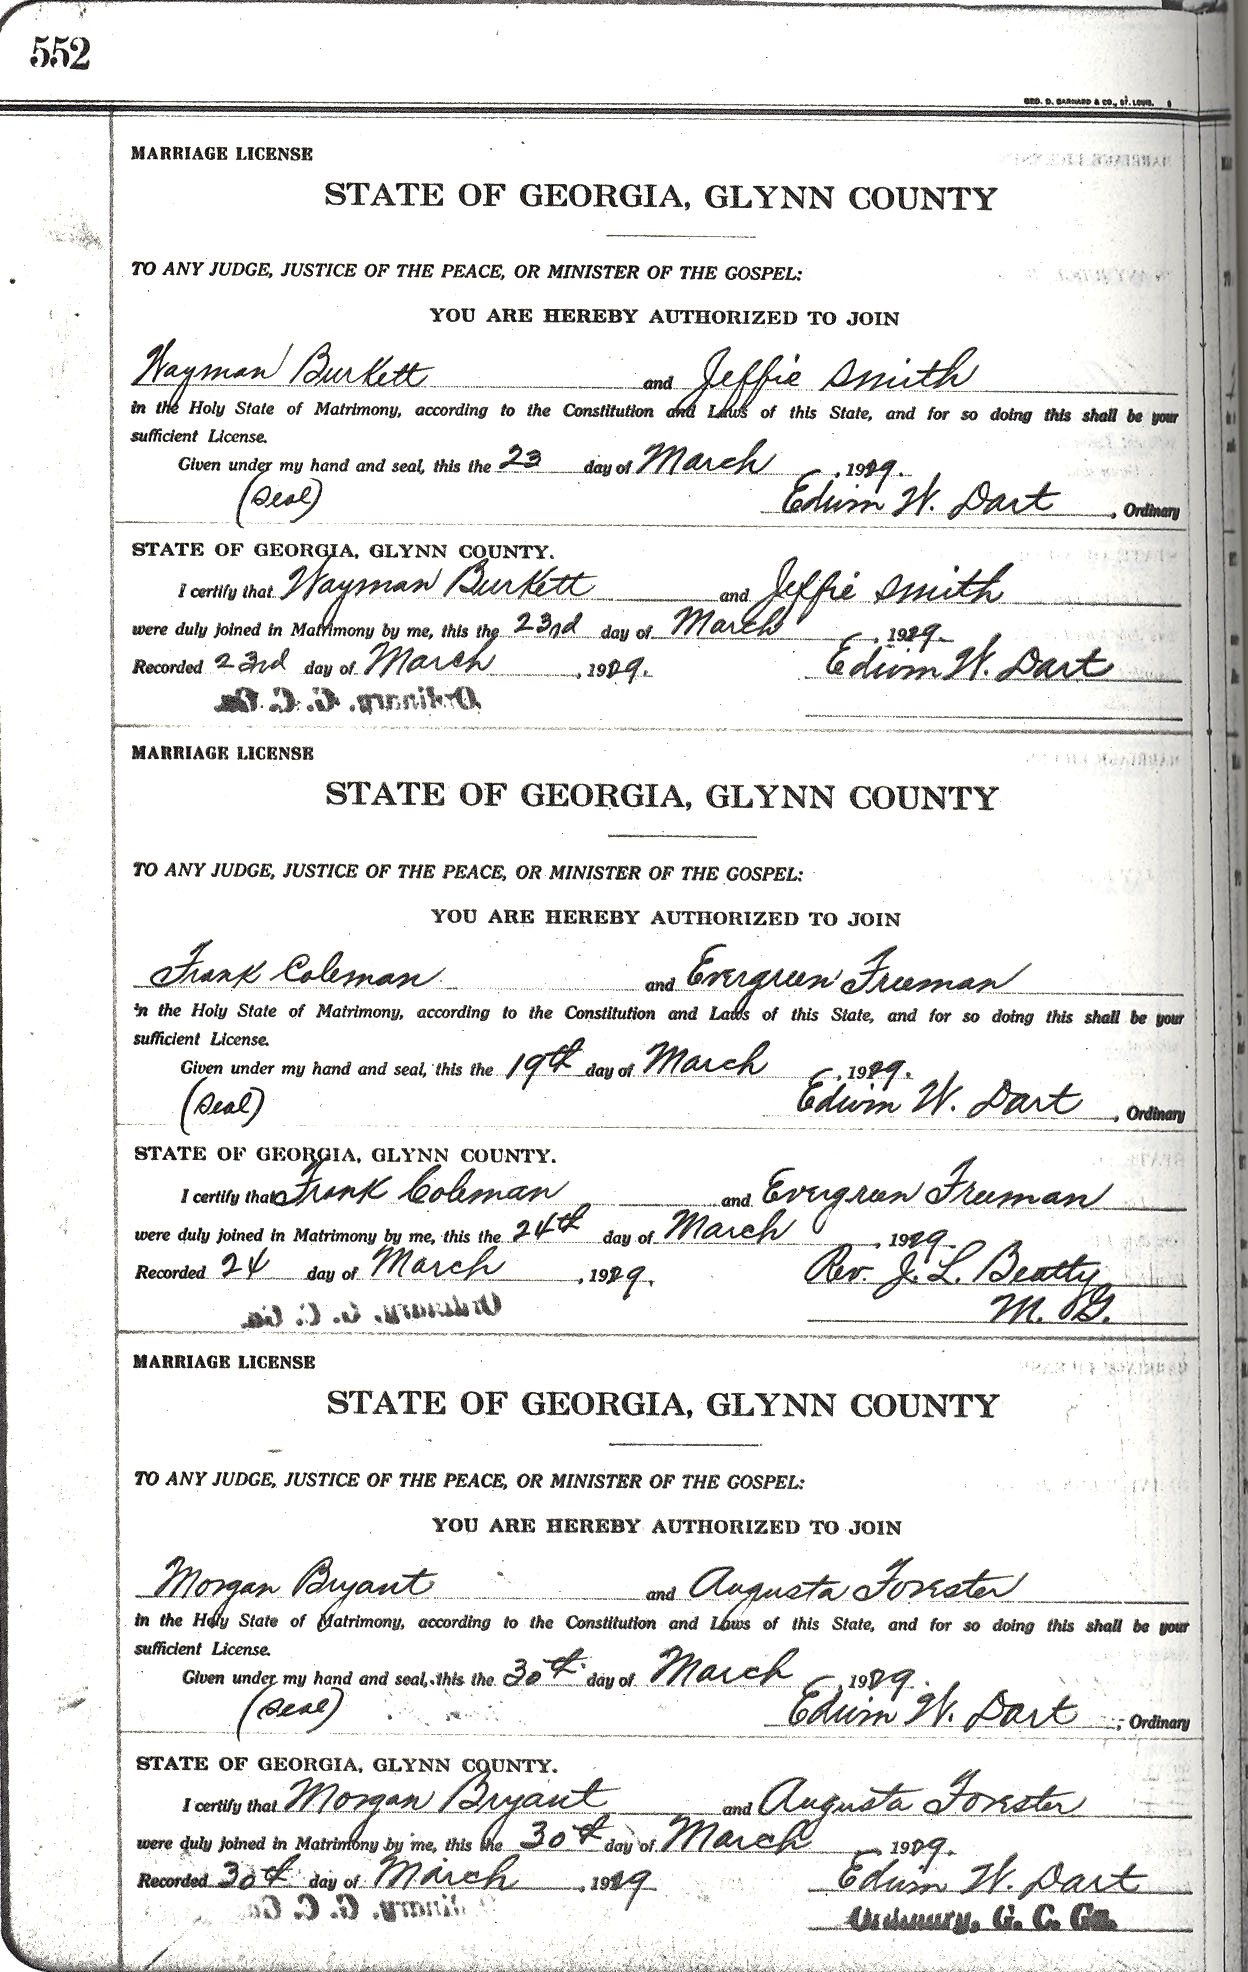 552
GEO. D. BARNARD & CO., ST. LOUIS.
MARRIAGE LICENSE
STATE OF GEORGIA, GLYNN COUNTY
TO ANY JUDGE, JUSTICE OF THE PEACE, OR MINISTER OF THE GOSPEL:
YOU ARE HEREBY AUTHORIZED TO JOIN
Wayman Burkett and Jeffie Smith
in the Holy State of Matrimony, according to the Constitution and Laws of this State, and for so doing this shall be your
sufficient License.
Given under my hand and seal, this the 23 day of March, 1929.
(Seal) Edwin W. Dart, Ordinary
STATE OF GEORGIA, GLYNN COUNTY.
I certify that Wayman Burkett and Jeffie Smith
were duly joined in Matrimony by me, this the 23rd day of March, 1929.
Recorded 23rd day of March, 1929. Edwin W. Dart
Ordinary, G. C. Ga.
MARRIAGE LICENSE
STATE OF GEORGIA, GLYNN COUNTY
TO ANY JUDGE, JUSTICE OF THE PEACE, OR MINISTER OF THE GOSPEL:
YOU ARE HEREBY AUTHORIZED TO JOIN
Frank Coleman and Evergreen Freeman
in the Holy State of Matrimony, according to the Constitution and Laws of this State, and for so doing this shall be your
sufficient License.
Given under my hand and seal, this the 19th day of March, 1929.
(Seal) Edwin W. Dart, Ordinary
STATE OF GEORGIA, GLYNN COUNTY.
I certify that Frank Coleman and Evergreen Freeman
were duly joined in Matrimony by me, this the 24th day of March, 1929.
Recorded 24 day of March, 1929. Rev. J. L. Beatty
Ordinary, G. C. Ga. M. G.
MARRIAGE LICENSE
STATE OF GEORGIA, GLYNN COUNTY
TO ANY JUDGE, JUSTICE OF THE PEACE, OR MINISTER OF THE GOSPEL:
YOU ARE HEREBY AUTHORIZED TO JOIN
Morgan Bryant and Augusta Forester
in the Holy State of Matrimony, according to the Constitution and Laws of this State, and for so doing this shall be your
sufficient License.
Given under my hand and seal, this the 30th day of March, 1929.
(Seal) Edwin W. Dart, Ordinary
STATE OF GEORGIA, GLYNN COUNTY.
I certify that Morgan Bryant and Augusta Forester
were duly joined in Matrimony by me, this the 30th day of March, 1929.
Recorded 30th day of March, 1929 Edwin W. Dart
Ordinary, G. C. Ga. Ordinary, G. C. Ga.